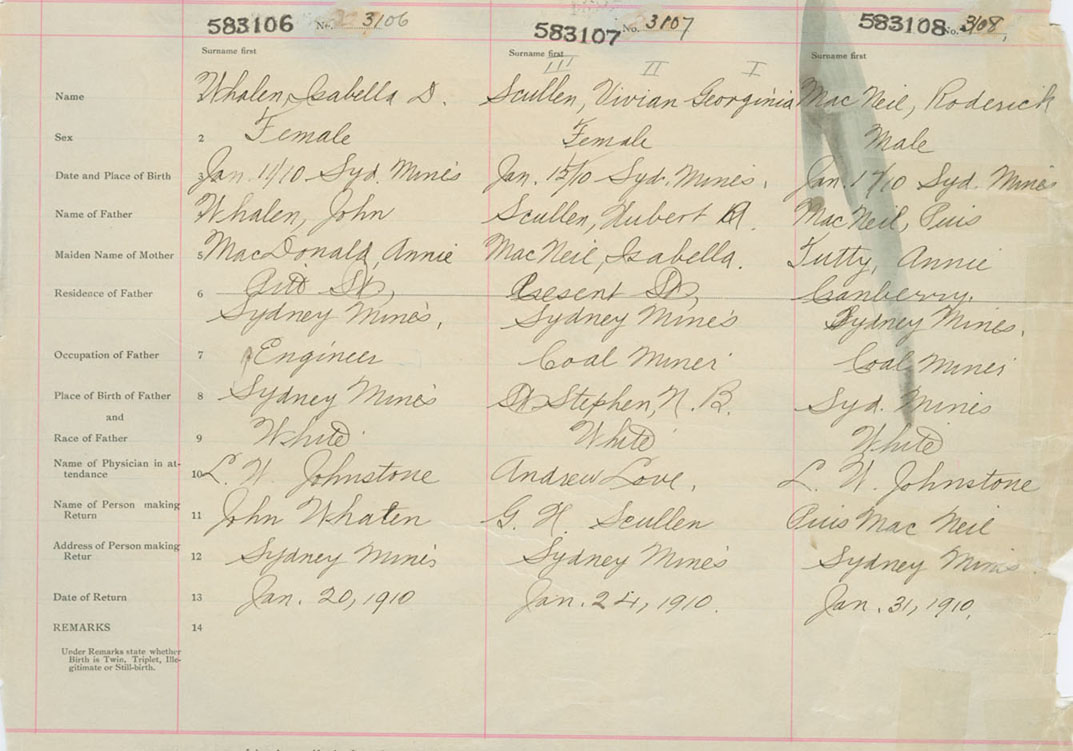 583106 No. 3106
583107 No. 3107
583108 No. 3108
Surname first Surname first Surname first
III II I
Name Whalen, Isabella D. Scullen, Vivian Georginia MacNeil, Roderick
Sex 2 Female Female Male
Date and Place of Birth 3 Jan. 11/10 Syd. Mines Jan. 15/10 Syd. Mines. Jan. 17/10 Syd. Mines
Name of Father Whalen, John Scullen, Hubert A. MacNeil, Pius
Maiden Name of Mother 5 MacDonald, Annie MacNeil, Isabella. Tutty, Annie
Residence of Father 6 Pitt St, Cresent St, Cranberry.
Sydney Mines, Sydney Mines Sydney Mines.
Occupation of Father 7 Engineer Coal Miner Coal Miner
Place of Birth of Father 8 Sydney Mines St Stephen, N.B. Syd. Mines
and
Race of Father 9 White White White
Name of Physician in at- 10 L. W. Johnstone Andrew Love. L. W. Johnstone
tendance
Name of Person making 11 John Whalen G. H. Scullen Pius MacNeil
Return
Address of Person making 12 Sydney Mines Sydney Mines Sydney Mines
Retur
Date of Return 13 Jan. 20, 1910 Jan. 24, 1910. Jan. 31, 1910.
REMARKS 14
Under Remarks state whether
Birth is Twin, Triplet, Ille-
gitimate or Still-birth.